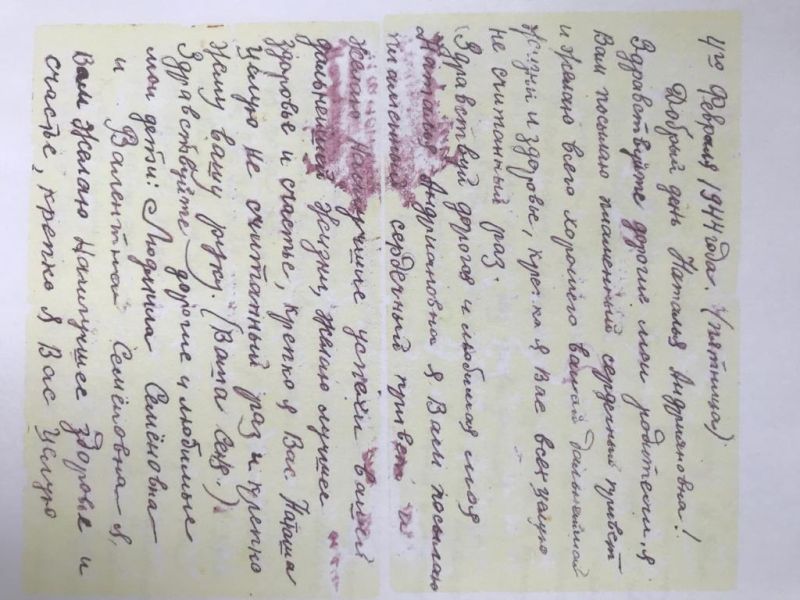 4го Февраля 1944 года. (пятница)
Добрый день Наталья Андриановна!
Здравствуйте дорогие мои родители, я
Вам посылаю пламенный сердечный привет
и желаю всего хорошего вашей дальнейшей
жизни и здоровье, крепко я Вас всех целую
не считанный раз.
Здравствуй дорогая и любимая моя
Наталия Андриановна я Вам посылаю
пламенный сердечный привет и
желаю наилучшие успехи вашей
дальнейшей жизни, желаю лучшее
здоровье и счастье, крепко я Вас Наташа
целую не считанный раз и крепко
жму вашу руку. (Ваш Сем.)
Здравствуйте дорогие и любимые
мои дети: Людмила Семёновна
и Валентина Семёновна я,
Вам желаю Наилучшее здоровье и
счастье, крепко я Вас целую